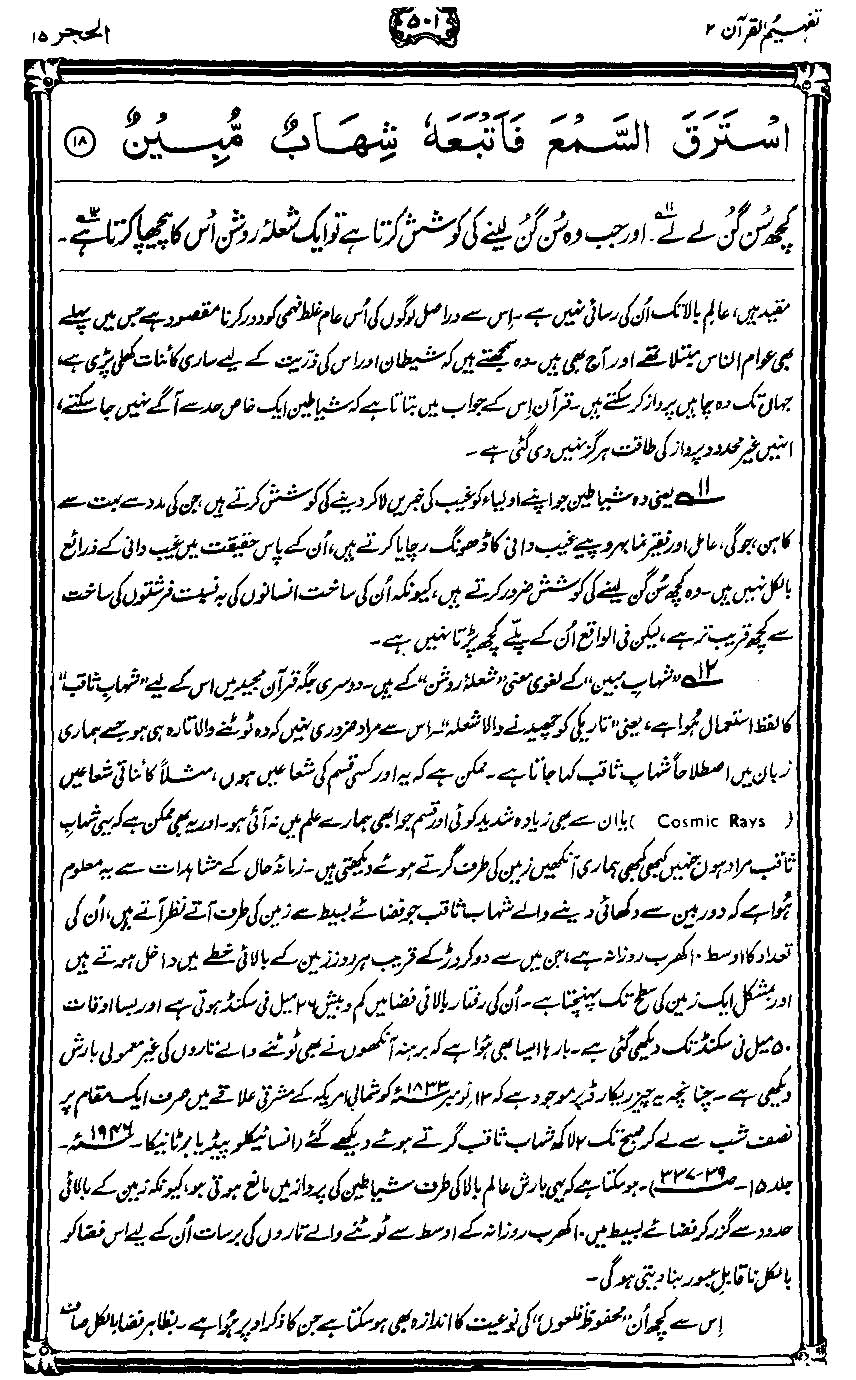 تفہیم القرآن ۲
۵۰۱
الحجر ۱۵
اسْتَرَقَ السَّمْعَ فَاَتْبَعَهٗ شِهَابٌ مُّبِيْنٌ ۝۱۸
کچھ سُن گُن لے لے۔ اور جب وہ سُن گُن لینے کی کوشش کرتا ہے تو ایک شعلۂ روشن اُس کا پیچھا کرتا ہے۔
مقید ہیں، عالمِ بالا تک اُن کی رسائی نہیں ہے۔ اِس سے دراصل لوگوں کی اُس عام غلط فہمی کو دور کرنا مقصود ہے جس میں پہلے
بھی عوام الناس مبتلا تھے اور آج بھی ہیں۔ وہ سمجھتے ہیں کہ شیطان اور اس کی ذریت کے لیے ساری کائنات کھلی پڑی ہے،
جہاں تک وہ چاہیں پرواز کر سکتے ہیں۔ قرآن اِس کے جواب میں بتاتا ہے کہ شیاطین ایک خاص حد سے آگے نہیں جا سکتے،
انہیں غیر محدود پرواز کی طاقت ہرگز نہیں دی گئی ہے۔
۱۱ یعنی وہ شیاطین جو اپنے اولیاء کو غیب کی خبریں لا کر دینے کی کوشش کرتے ہیں، جن کی مدد سے بہت سے
کاہن، جوگی، عامل اور فقیر نما بہروپیے غیب دانی کا ڈھونگ رچایا کرتے ہیں، اُن کے پاس حقیقت میں غیب دانی کے ذرائع
بالکل نہیں ہیں۔ وہ کچھ سُن گن لینے کی کوشش ضرور کرتے ہیں، کیونکہ اُن کی ساخت انسانوں کی بہ نسبت فرشتوں کی ساخت
سے کچھ قریب تر ہے، لیکن فی الواقع اُن کے پلّے کچھ پڑتا نہیں ہے۔
۱۲ ”شہابِ مبین“ کے لغوی معنی ”شعلۂ روشن“ کے ہیں۔ دوسری جگہ قرآن مجید میں اس کے لیے ”شہابِ ثاقب“
کا لفظ استعمال ہُوا ہے، یعنی ”تاریکی کو چھیدنے والا شعلہ“۔ اس سے مراد ضروری نہیں کہ وہ ٹوٹنے والا تارہ ہی ہو جسے ہماری
زبان میں اصطلاحاً شہابِ ثاقب کہا جاتا ہے۔ ممکن ہے کہ یہ اور کسی قسم کی شعاعیں ہوں، مثلاً کائناتی شعاعیں
( Cosmic Rays ) یا ان سے بھی زیادہ شدید کوئی اور قسم جو ابھی ہمارے علم میں نہ آئی ہو۔ اور یہ بھی ممکن ہے کہ یہی شہابِ
ثاقب مراد ہوں جنہیں کبھی کبھی ہماری آنکھیں زمین کی طرف گرتے ہوئے دیکھتی ہیں۔ زمانۂ حال کے مشاہدات سے یہ معلوم
ہُوا ہے کہ دوربین سے دکھائی دینے والے شہاب ثاقب جو فضائے بسیط سے زمین کی طرف آتے نظر آتے ہیں، اُن کی
تعداد کا اوسط ۱۰ کھرب روزانہ ہے، جن میں سے دو کروڑ کے قریب ہر روز زمین کے بالائی خطے میں داخل ہوتے ہیں
اور بمشکل ایک زمین کی سطح تک پہنچتا ہے۔ اُن کی رفتار بالائی فضا میں کم و بیش ۲۶ میل فی سکنڈ ہوتی ہے اور بسا اوقات
۵۰ میل فی سکنڈ تک دیکھی گئی ہے۔ بارہا ایسا بھی ہُوا ہے کہ برہنہ آنکھوں نے بھی ٹوٹنے والے تاروں کی غیر معمولی بارش
دیکھی ہے۔ چنانچہ یہ چیز ریکارڈ پر موجود ہے کہ ۱۳ نومبر ۱۸۳۳ء کو شمالی امریکہ کے مشرقی علاقے میں صرف ایک مقام پر
نصف شب سے لے کر صبح تک ۲ لاکھ شہاب ثاقب گرتے ہوئے دیکھے گئے (انسائیکلوپیڈیا برٹانیکا۔ ۱۹۴۶ء۔
جلد ۱۵۔ ص ۳۹-۳۳۷)۔ ہو سکتا ہے کہ یہی بارش عالم بالا کی طرف شیاطین کی پرواز میں مانع ہوتی ہو، کیونکہ زمین کے بالائی
حدود سے گزر کر فضائے بسیط میں ۱۰ کھرب روزانہ کے اوسط سے ٹوٹنے والے تاروں کی برسات اُن کے لیے اس فضا کو
بالکل ناقابل عبور بنا دیتی ہوگی۔
اِس سے کچھ اُن ”محفوظ قلعوں“ کی نوعیت کا اندازہ بھی ہو سکتا ہے جن کا ذکر اوپر ہُوا ہے۔ بظاہر فضا بالکل صاف